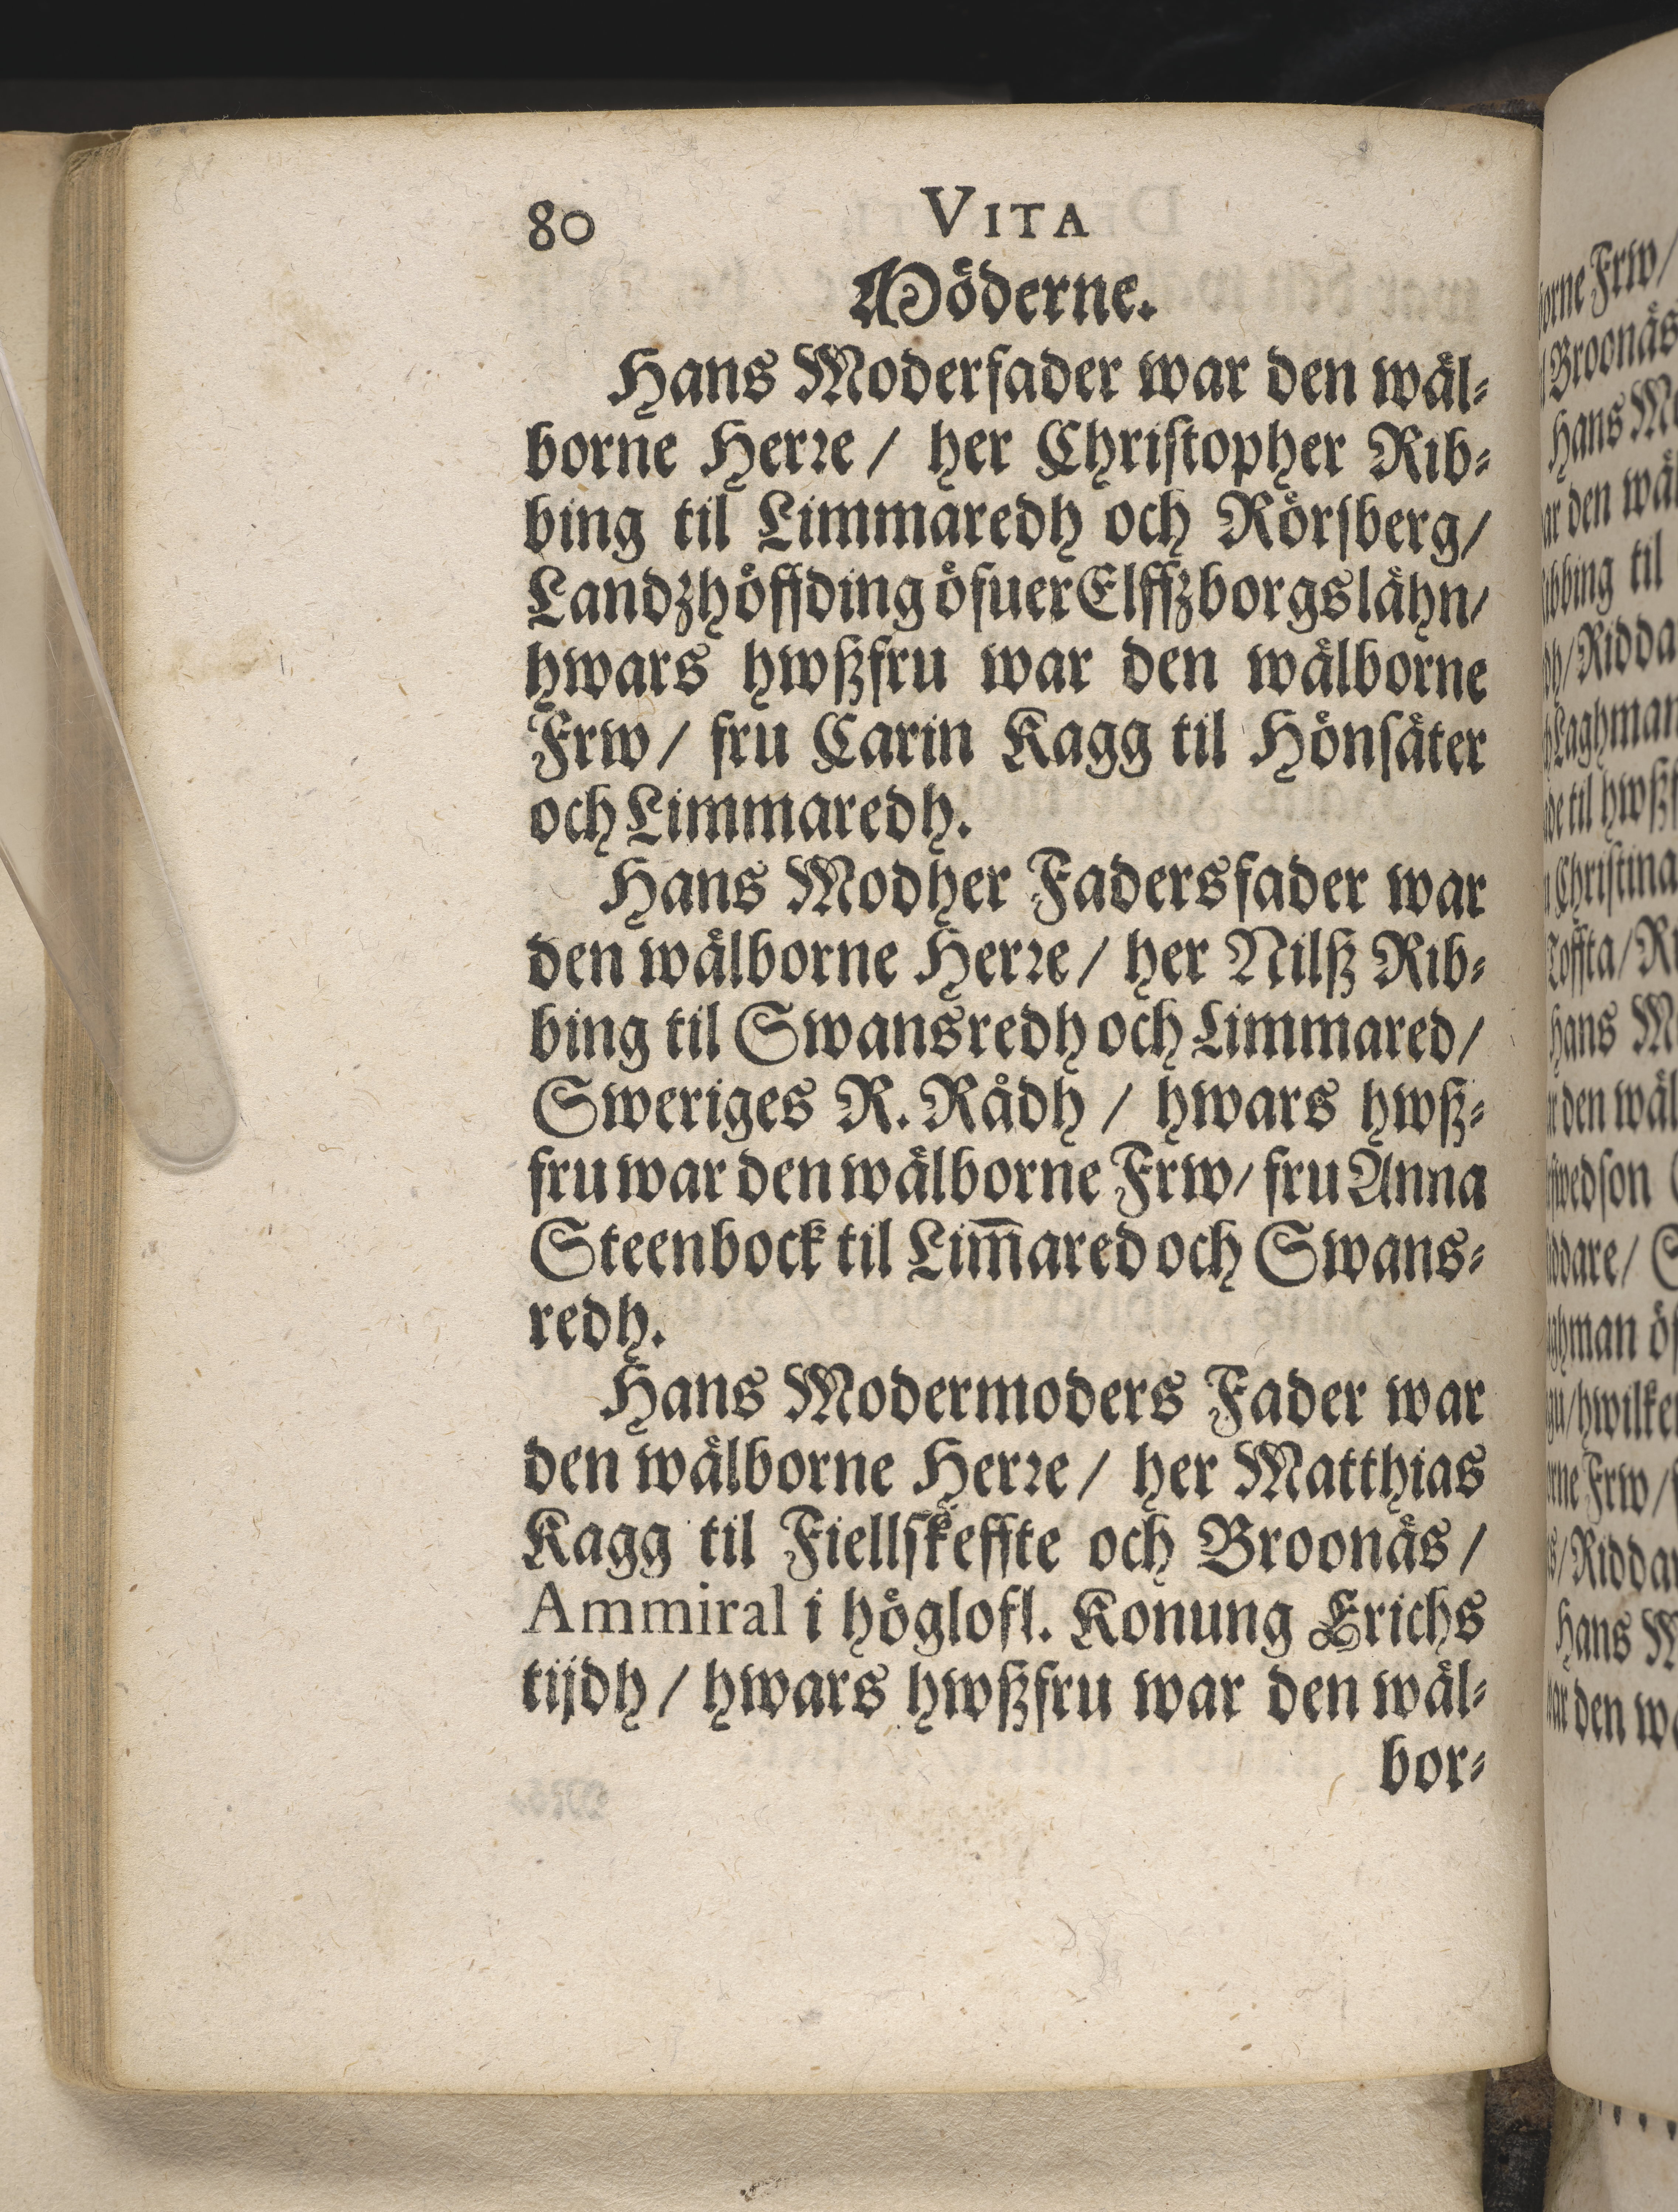 80 VITA
Möderne.
Hans Moderfader war den wäl-
borne Herre / her Christopher Rib-
bing til Limmaredh och Rörsberg/
Landzhöffding öfuer Elffzborgs lähn/
hwars hwßfru war den wälborne
Frw / fru Carin Kagg til Hönsäter
och Limmaredh.
Hans Modher Fadersfader war
den wälborne Herre / her Nilß Rib-
bing til Swansredh och Limmared/
Sweriges R. Rådh / hwars hwß-
fru war den wälborne Frw/ fru Anna
Steenbock til Lim̅ared och Swans-
redh.
Hans Modermoders Fader war
den wälborne Herre / her Matthias
Kagg til Fiellskeffte och Broonäs /
Ammiral i höglofl. Konung Erichs
tijdh / hwars hwßfru war den wäl-
bor-
Frw/
Broonäs
Hans
den
til
Christina
Hans
den
Hans
den